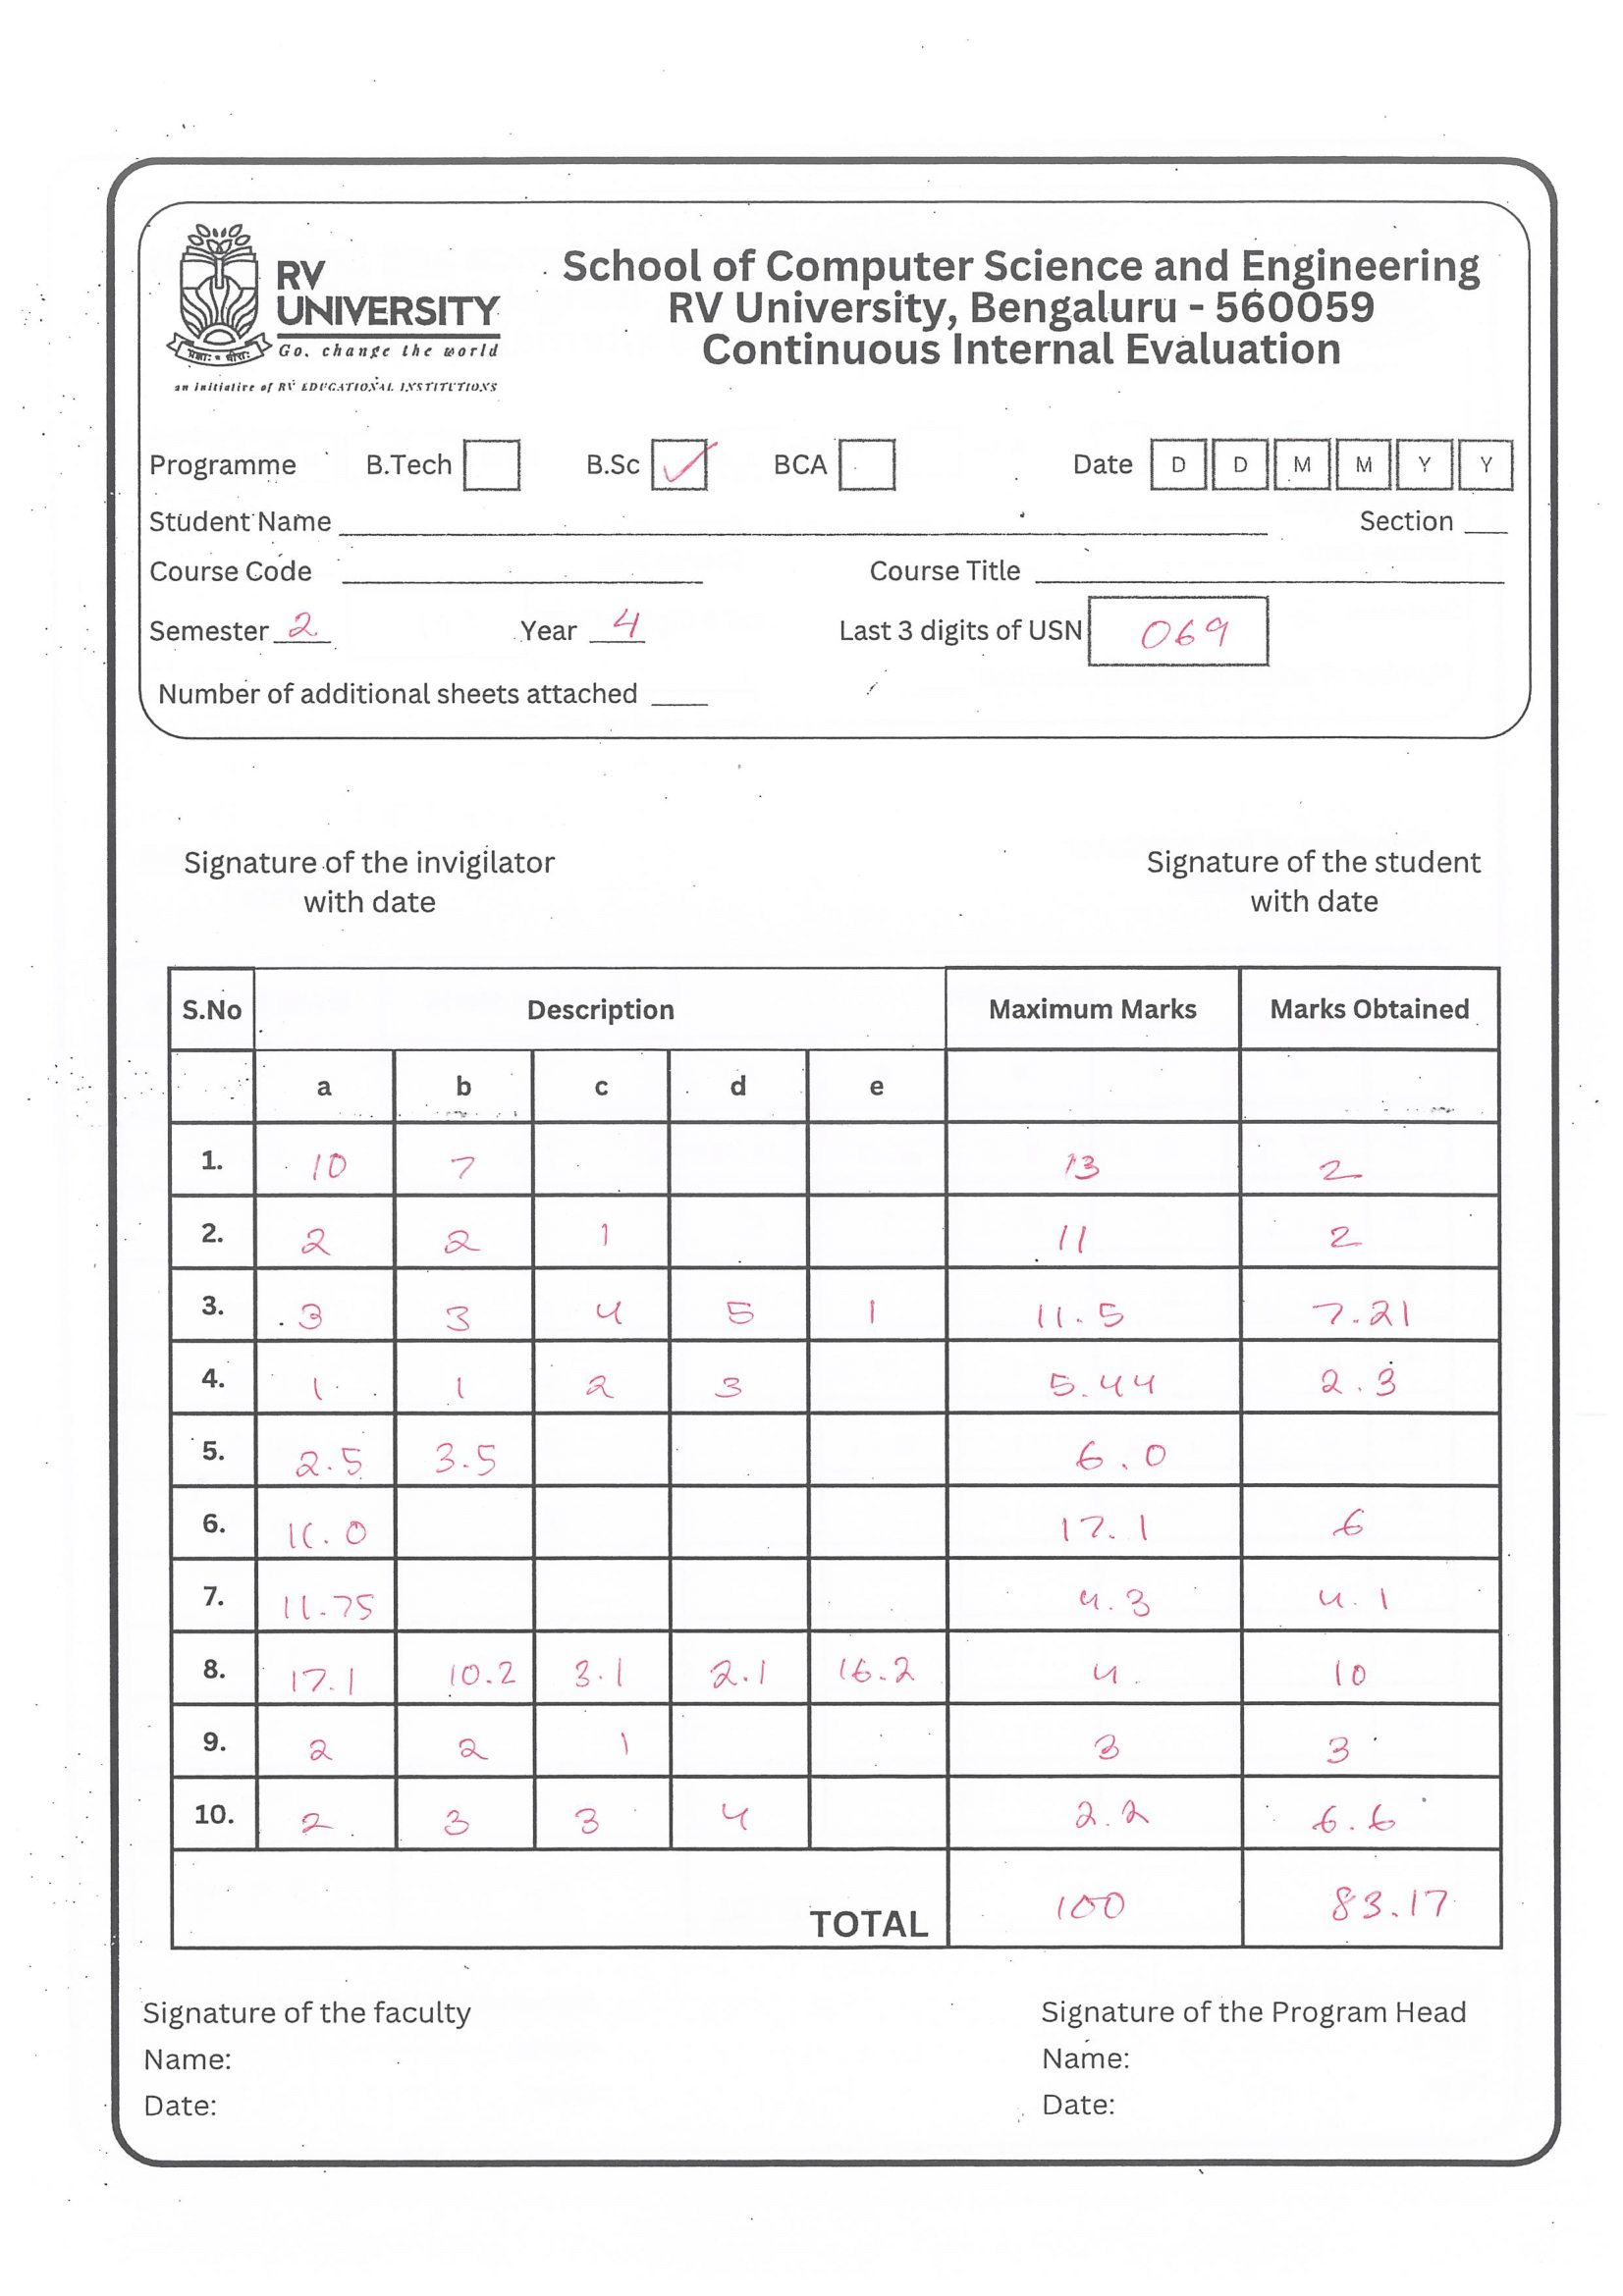 RV
UNIVERSITY
Go, change the world
an initiative of RV EDUCATIONAL INSTITUTIONS
School of Computer Science and Engineering
RV University, Bengaluru - 560059
Continuous Internal Evaluation
Programme B.Tech B.Sc ✓ BCA Date D D M M Y Y
Student Name Section
Course Code Course Title
Semester 2 Year 4 Last 3 digits of USN 069
Number of additional sheets attached
Signature of the invigilator
with date
Signature of the student
with date
S.No Description Maximum Marks Marks Obtained
a b c d e
1. 10 7 13 2
2. 2 2 1 11 2
3. 3 3 4 5 1 11.5 7.21
4. 1 1 2 3 5.44 2.3
5. 2.5 3.5 6.0
6. 11.0 17.1 6
7. 11.75 4.3 4.1
8. 17.1 10.2 3.1 2.1 16.2 4 10
9. 2 2 1 3 3
10. 2 3 3 4 2.2 6.6
TOTAL 100 83.17
Signature of the faculty Signature of the Program Head
Name: Name:
Date: Date: